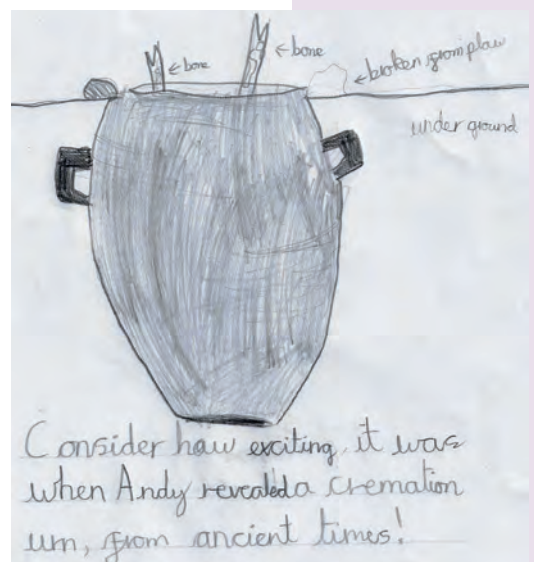 bone
bone
broken from plaw
underground
Consider haw exciting, it was
when Andy revealed a cremation
urn, from ancient times!